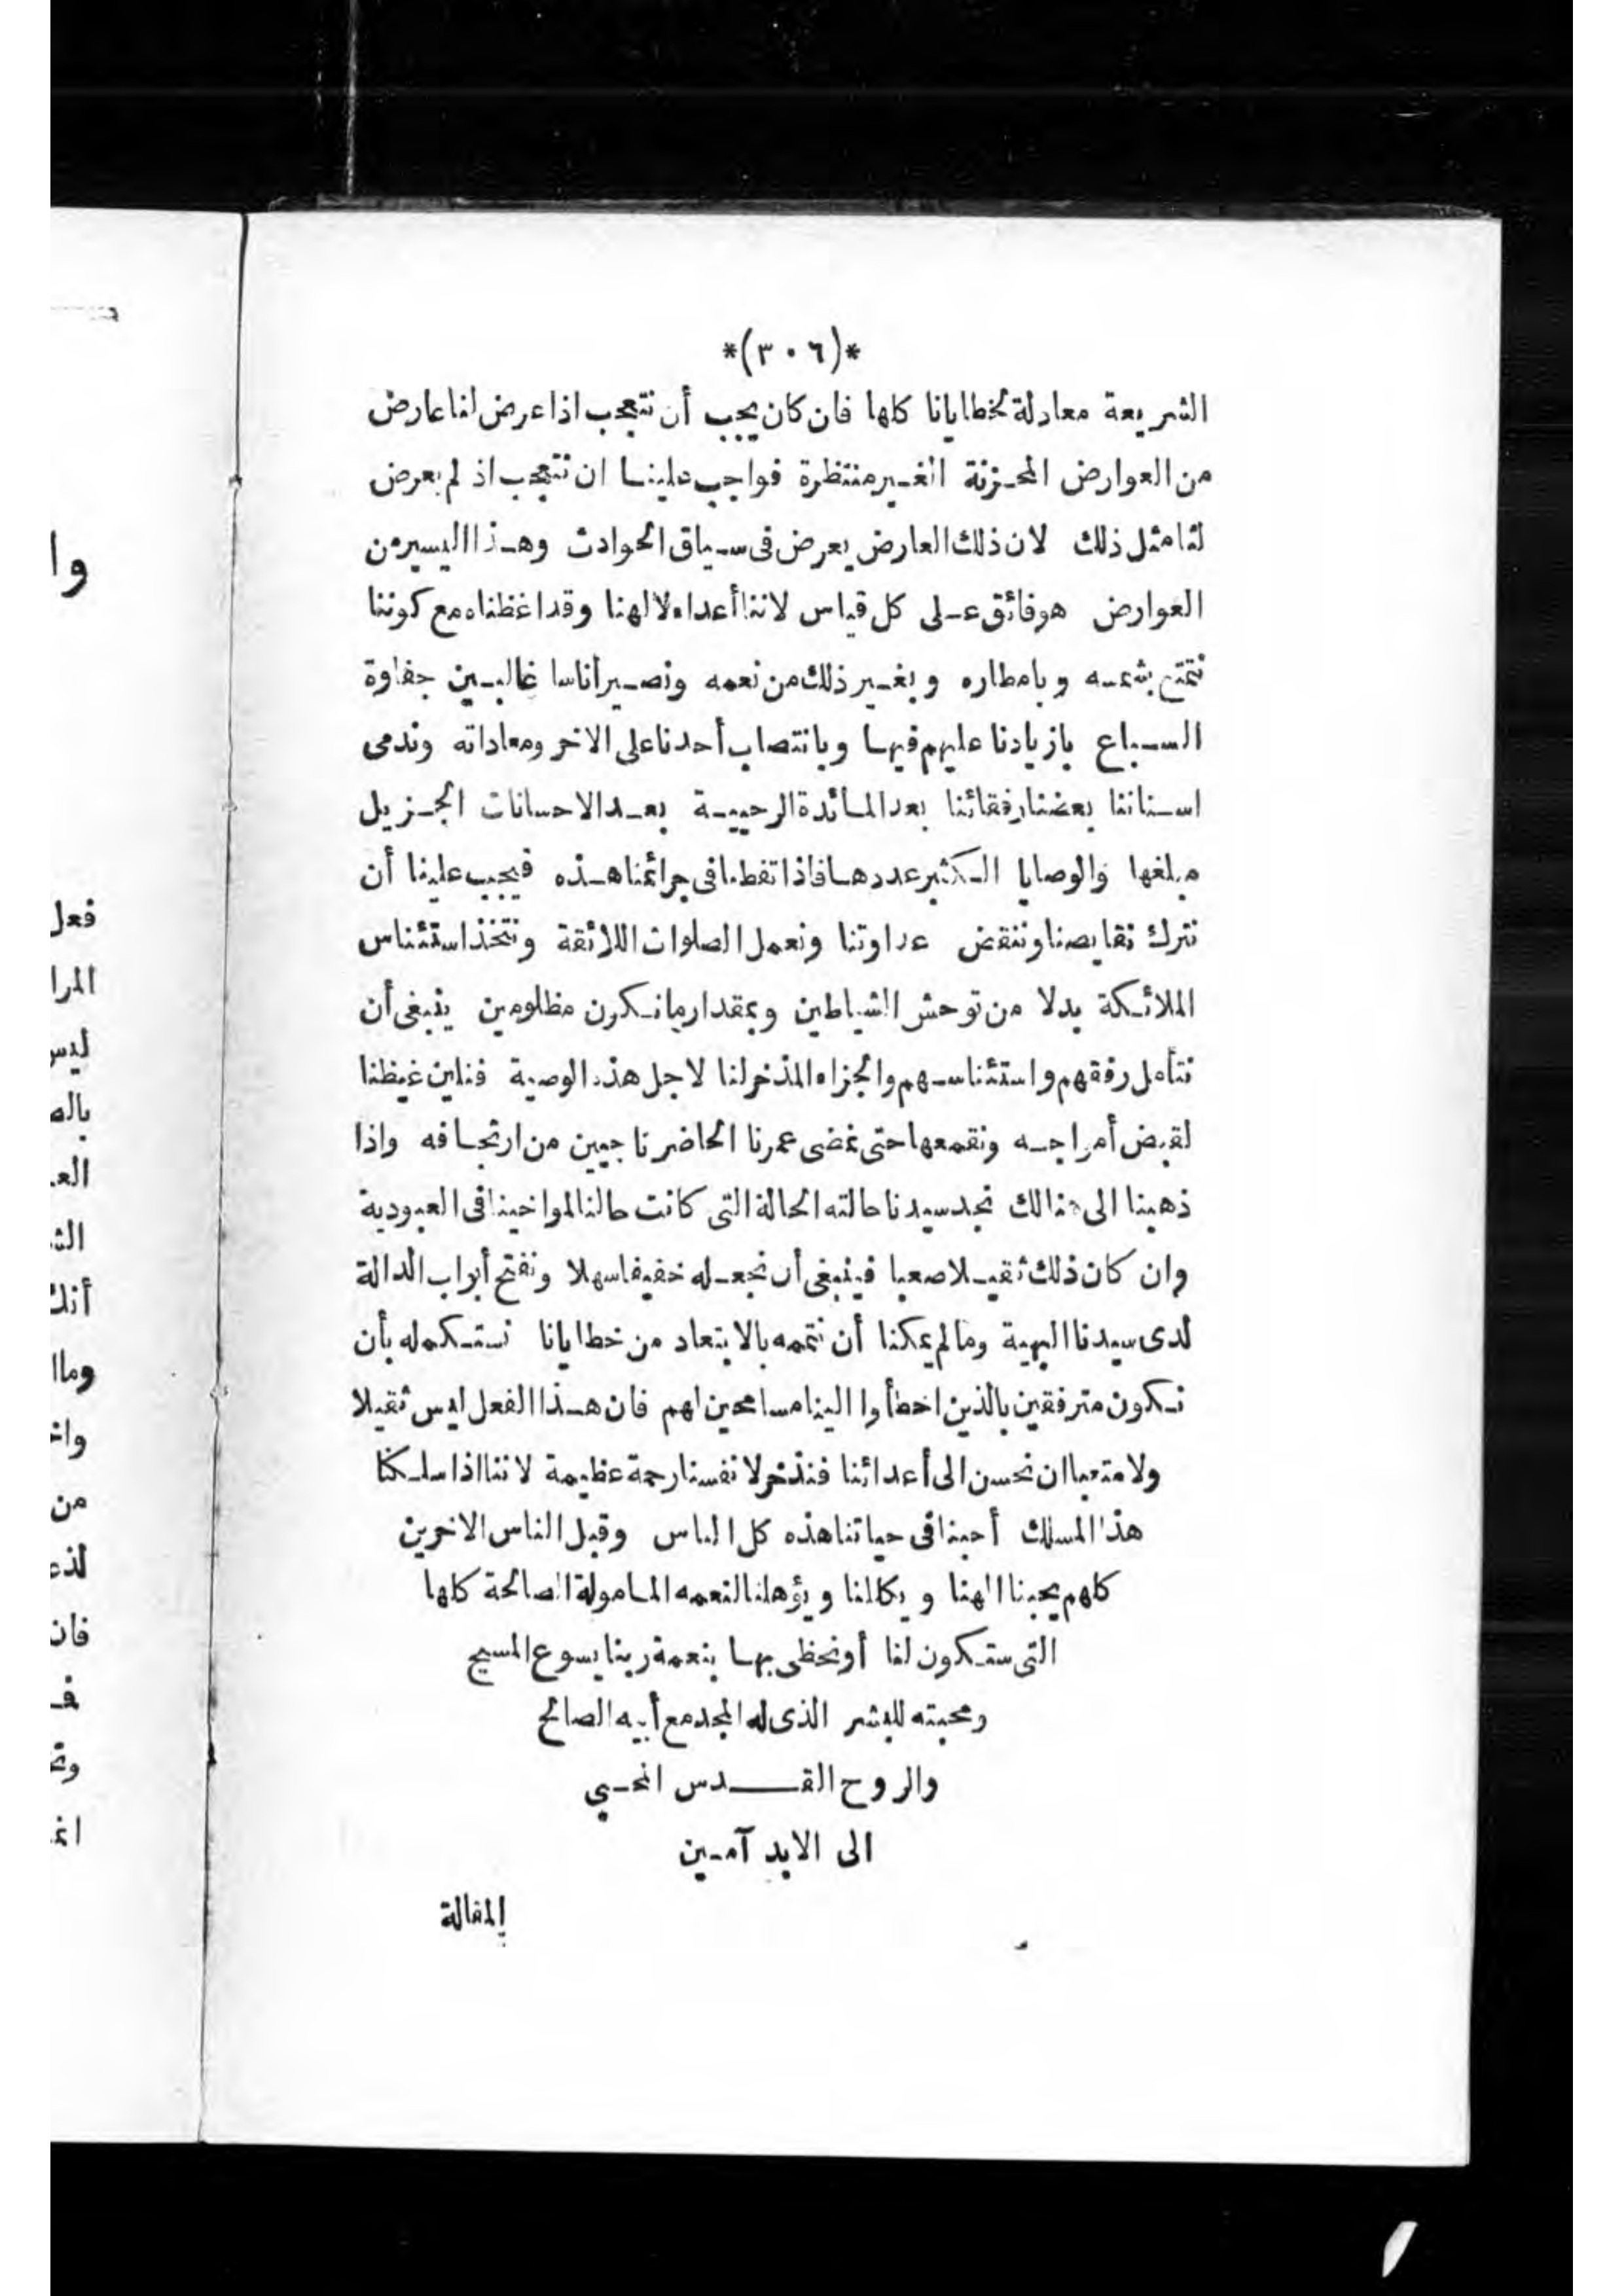 *(٣٠٦)*
الشريعة معادلة لخطايانا كلها فان كان يجب أن نتعجب اذا عرض لنا عارض
من العوارض المحزنة الغير منتظرة فواجب علينا ان نتعجب اذ لم يعرض
لنا مثل ذلك لان ذلك العارض يعرض فى سياق الحوادث وهذا اليسير من
العوارض هو فائق على كل قياس لاننا أعداء لالهنا وقد اغظناه مع كوننا
نتمتع بشمسه وبامطاره وبغير ذلك من نعمه ونصير أناسا غالبين جفاوة
السباع بازيادنا عليهم فيها وبانتصاب أحدنا على الاخر ومعاداته وندمى
اسناننا بعضنا رفقائنا بعد المائدة الرحيمة بعد الاحسانات الجزيل
مبلغها والوصايا الكثير عددها فاذا تفطنا فى جرائمنا هذه فيجب علينا أن
نترك نقايصنا وننقض عداوتنا ونعمل الصلوات اللائقة ونتخذ استئناس
الملائكة بدلا من توحش الشياطين وبمقدار ما نكون مظلومين ينبغى أن
نتأمل رفقهم واستئناسهم والجزاء المذخر لنا لاجل هذه الوصية فنلين غيظنا
لقبض أمواجه ونقمعها حتى نمضى عمرنا الحاضر ناجيين من ارتجافه واذا
ذهبنا الى هنالك نجد سيدنا حالته الحالة التى كانت حالنا لمواخينا فى العبودية
وان كان ذلك ثقيلا صعبا فينبغى أن نجعله خفيفا سهلا ونفتح أبواب الدالة
لدى سيدنا البهية وما لم يمكنا أن نتممه بالابتعاد من خطايانا نستكمله بأن
نكون مترفقين بالذين اخطأوا الينا مسامحين لهم فان هذا الفعل ليس ثقيلا
ولا متعبا ان نحسن الى أعدائنا فنذخر لانفسنا رحمة عظيمة لاننا اذا سلكنا
هذا المسلك أحبنا فى حياتنا هذه كل الناس وقبل الناس الاخرين
كلهم يحبنا الهنا ويكللنا ويؤهلنا لنعمه المامولة الصالحة كلها
التى ستكون لنا أو نحظى بها بنعمة ربنا يسوع المسيح
ومحبته للبشر الذى له المجد مع أبيه الصالح
والروح القدس المحيي
الى الابد آمين
المقالة
وا
فعل
المرا
ليس
بالم
أنك
وما
من
فان